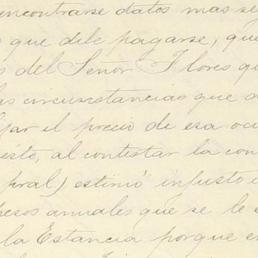 encontrarse datos mas se
que debe pagarse, que
del Señor Flores qu
las circunstancias que
jar el precio de esa ocu
esto, al contestar la con
pral) estimó injusto
pesos anuales que se le
la Estancia porque en